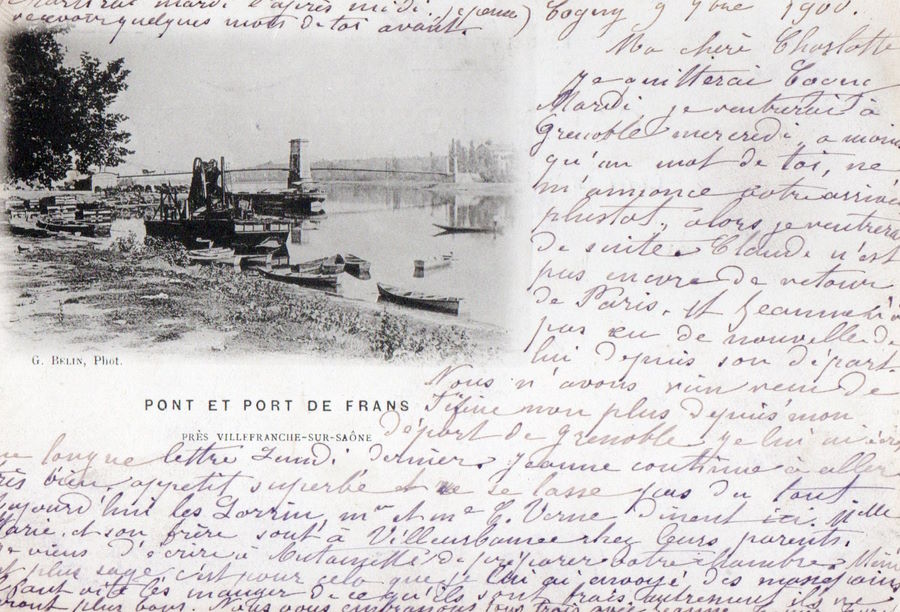 mardi l'après midi
recevoir quelques mots de toi avant.
Cogny 9 9bre 1900.
Ma chère Charlotte
je quitterai Cogny
Mardi, je rentrerai à
Grenoble mercredi, a moins
qu'un mot de toi, ne
m'annonce votre arrivée
plustot, alors je rentrerai
de suite. Claude n'est
pas encore de retour
de Paris, et Jeanne n'a
pas eu de nouvelle de
lui depuis son départ.
G. BELIN, Phot.
PONT ET PORT DE FRANS
PRÈS VILLEFRANCHE-SUR-SAÔNE
Nous n'avons rien reçu de
Fifine non plus depuis mon
départ de Grenoble je lui ai écrit
une longue lettre Lundi dernier. Jeanne continue à aller
très bien, appetit superbe et ne se lasse pas du tout
aujourd'hui les Lorrin, mr et me C. Verne dinent ici. Melle
Marie, et son frère sont à Villeurbanne chez leurs parents.
Je viens d'écrire à Antoinette de préparer votre chambre. Mémé
est plus sage c'est pour cela que je lui ai envoyé des
faut vite les manger de ce qu'ils sont frais, autrement ils ne
seront plus bons. Nous vous embrassons tous trois avec Jeanne